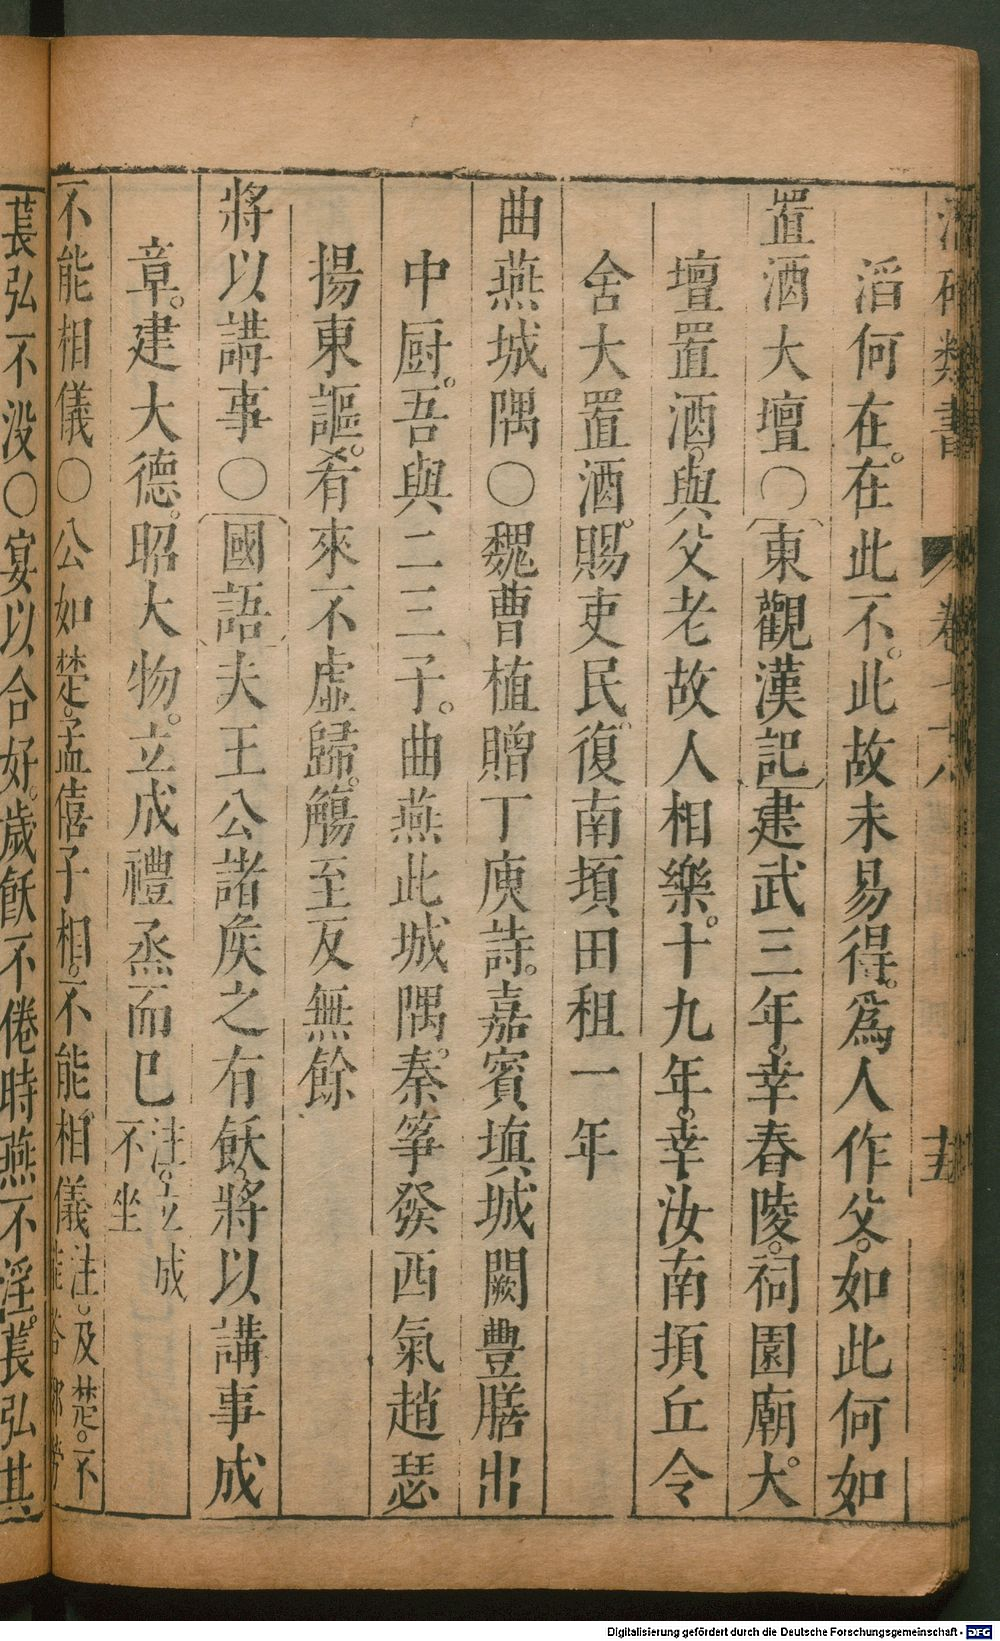 類書 卷 十八 十五
滔何在。在此不。此故未易得。爲人作父。如此何如
置酒大壇〇東觀漢記建武三年。幸舂陵。祠園廟。大
壇置酒。與父老故人相樂。十九年。幸汝南頊丘令
舍大置酒。賜吏民。復南頊田租一年
曲燕城隅〇魏曹植贈丁庾詩。嘉賓塡城闕豐膳出
中厨。吾與二三子。曲燕此城隅。秦筝發西氣趙瑟
揚東謳。肴來不虛歸。觴至反無餘
將以講事〇國語夫王公諸矦之有飫將以講事成
章。建大德。昭大物。立成禮烝而已注。立成不坐
不能相儀〇公如楚。孟僖子相。不能相儀注。及楚。不
萇弘不没〇宴以合好。歲飫不倦時燕不淫。萇弘其
Digitalisierung gefördert durch die Deutsche Forschungsgemeinschaft - DFG